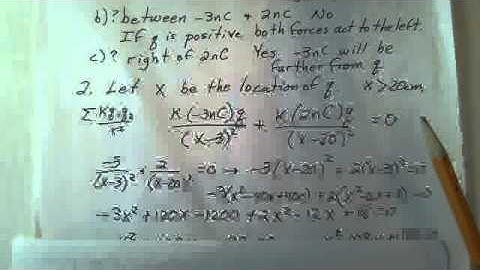 b) ? between -3nC & 2nC No
If q is positive both forces act to the left.
c) ? right of 2nC Yes -3nC will be
further from q
2. Let x be the location of q. x > 20cm
Σ Kq₁q₂/r² K(-3nC)q/(x-3)² + K(2nC)q/(x-20)² = 0
-3/(x-3)² + 2/(x-20)² = 0 → -3(x-20)² + 2(x-3)² = 0
-3x² + 120x - 1200 + 2x² - 12x + 18 = 0